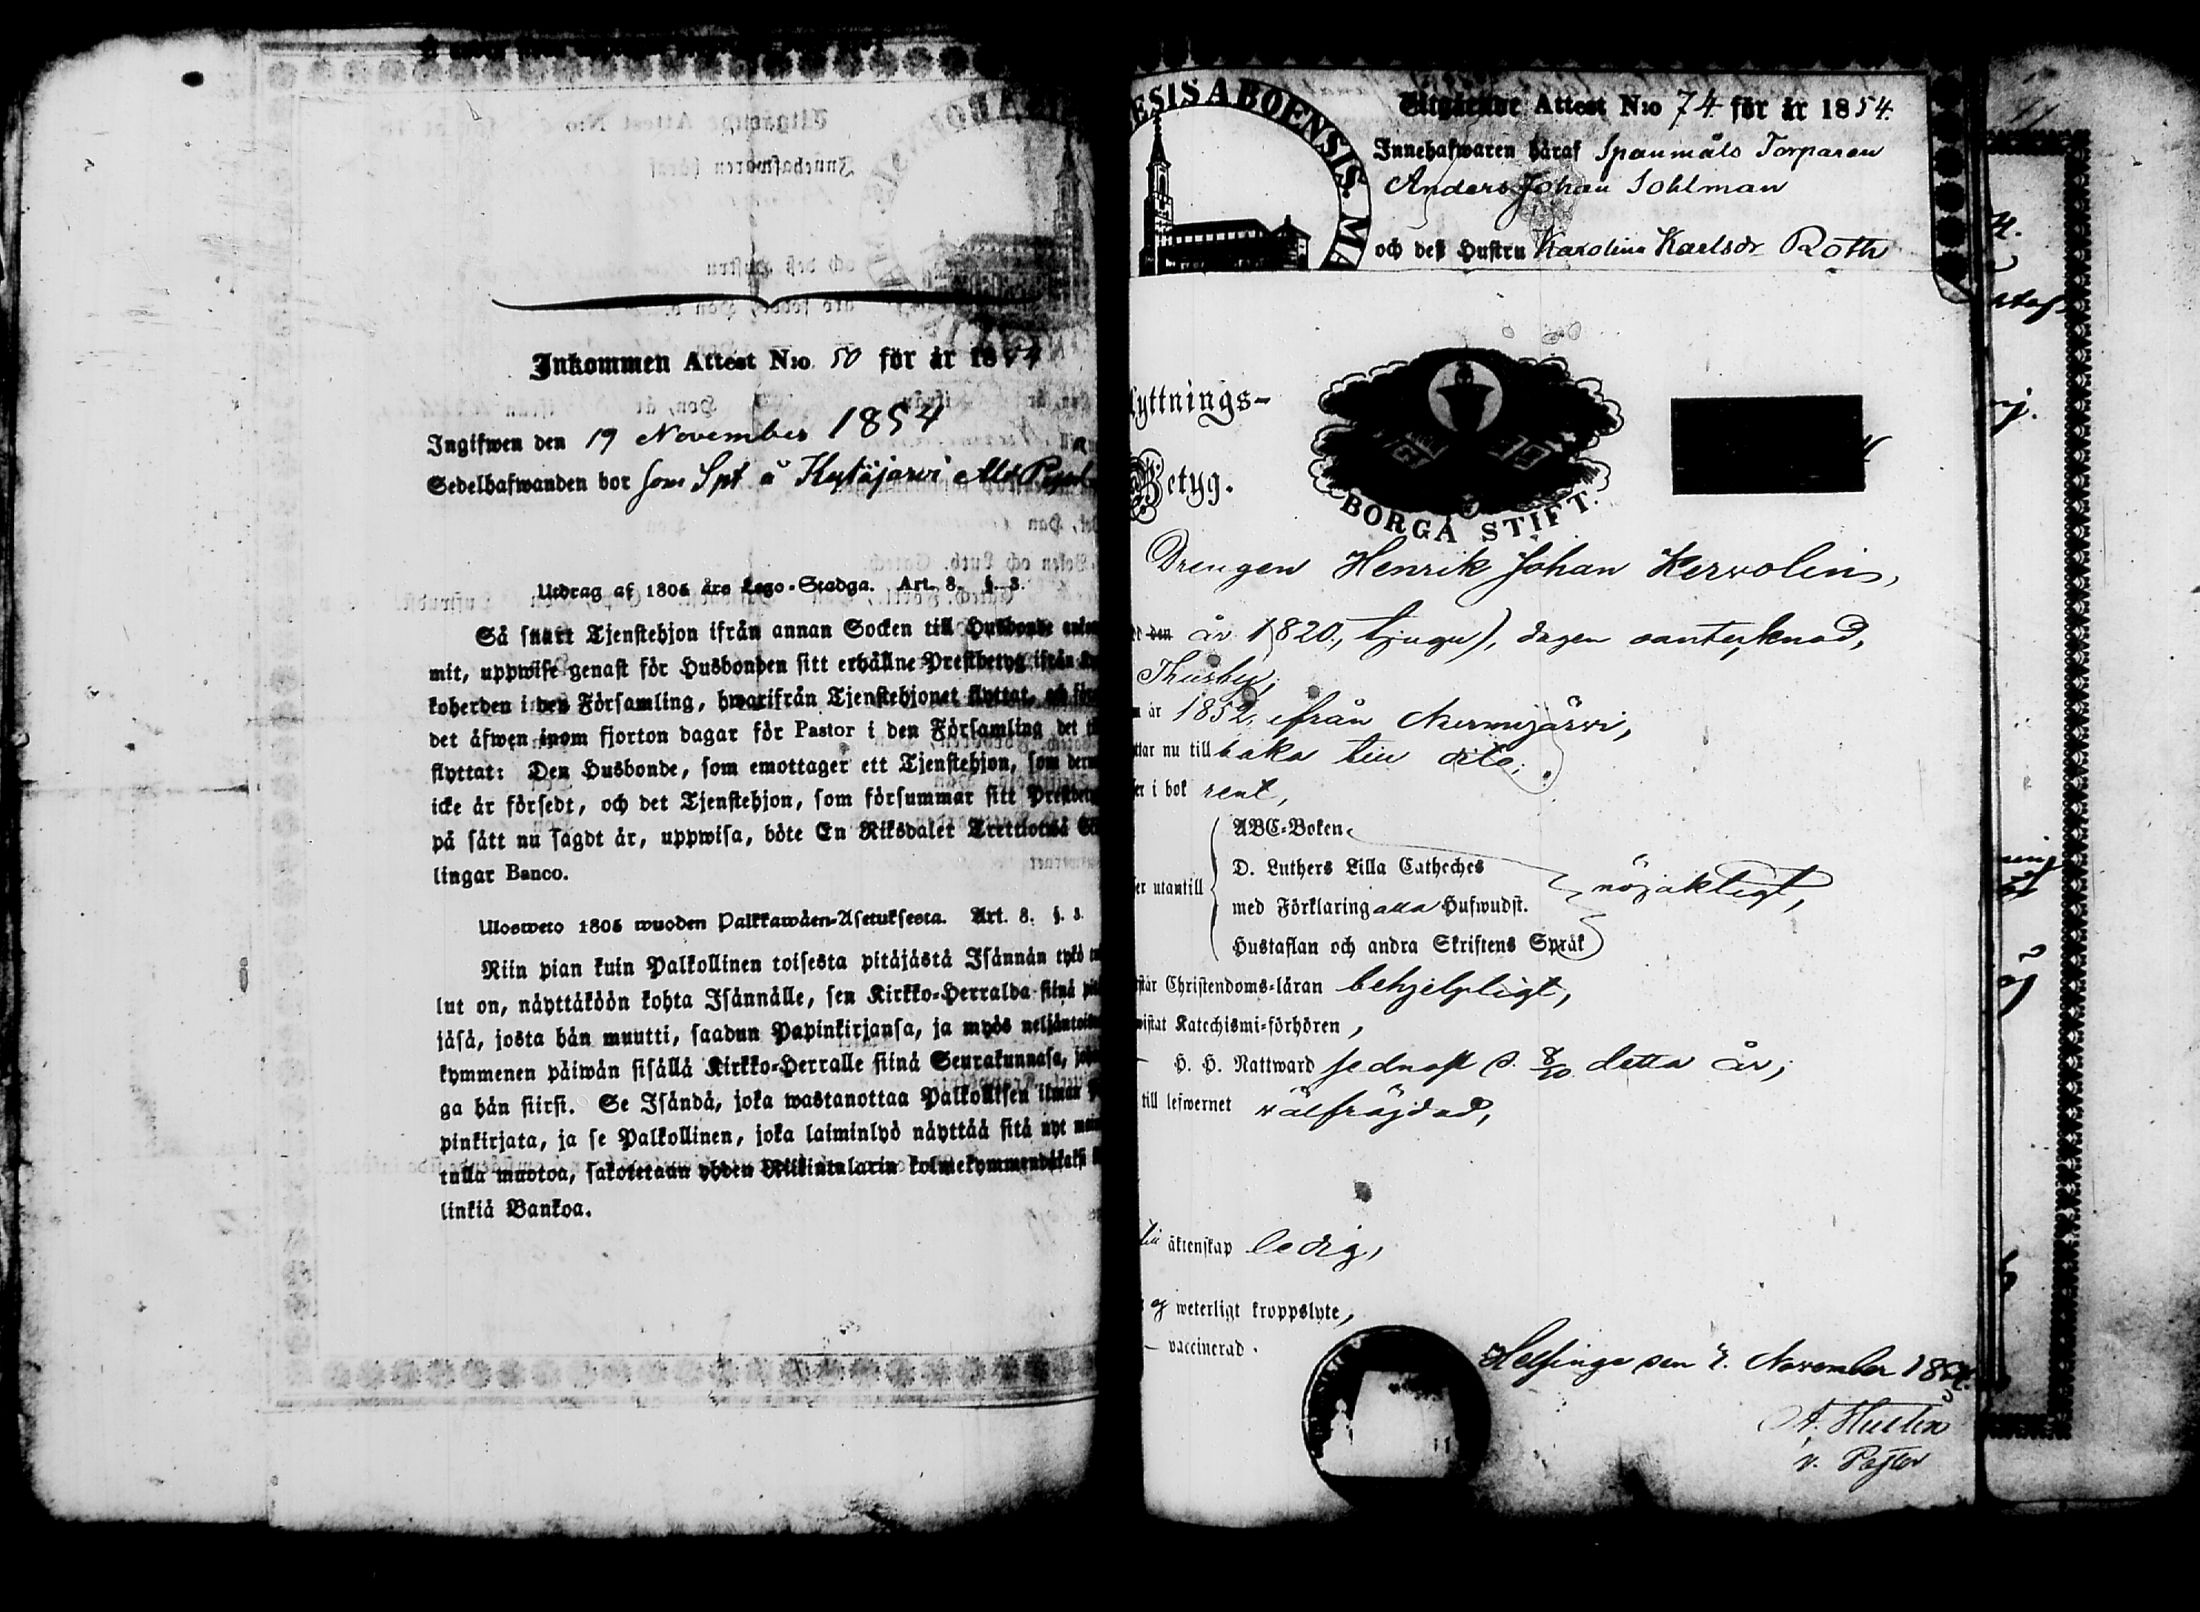 Inkommen Attest N:o 50 för år 1854
Ingifwen den 19 November 1854
Sedelhafwanden bor som Spt å Kytäjärvi
Utdrag af 1805 års Lego-Stadga. Art. 8. §. 3.
Så snart Tjenstehjon ifrån annan Socken till Husbonde
mit, uppwise genast för Husbonden sitt erhållne Prestbetyg ifrån
koherden i den Församling, hwarifrån Tjenstehjonet flyttat,
det äfwen inom fjorton dagar för Pastor i den Församling det
flyttat: Den Husbonde, som emottager ett Tjenstehjon, som
icke är försedt, och det Tjenstehjon, som försummar sitt
på sätt nu sagdt är, uppwisa, böte En Riksdaler Trettiotwå
lingar Banco.
Ulosweto 1805 wuoden Palkkawäen-Asetuksesta. Art. 8. §. 3.
Niin pian kuin Palkollinen toisesta pitäjästä Isännän tykö
lut on, näyttäköön kohta Isännälle, sen Kirkko-Herralda siinä
jäsä, josta hän muutti, saadun Papinkirjansa, ja myös
kymmenen päiwän sisällä Kirkko-Herralle siinä Seurakunnasa,
ga hän siirsi. Se Isändä, joka wastanottaa Palkollisen ilman
pinkirjata, ja se Palkollinen, joka laiminlyö näyttää sitä nyt
tulla muotoa, sakotetaan yhden Riikintalarin
linkiä Bankoa.
ESIS ABOENSIS. MA
Utgående Attest N:o 74 för år 1854.
Innehafwaren häraf Spanmåls Torparen
Anders Johan Sohlman
och deß Hustru Karolina Karlsdr Roth
yttnings-
Betyg.
BORGÅ STIFT.
Drengen Henrik Johan Kervolin,
den år 1820, tjugu), dagen oantecknad,
Thusby,
år 1852, ifrån Nurmijärvi,
ttar nu tillbaka till dito;
er i bok rent,
ABC-Boken
D. Luthers Lilla Catheches
er utantill
nöjaktigt,
med Förklaring alla Hufwudst.
Hustaflan och andra Skriftens Språk
står Christendoms-läran behjelpligt,
wistat Katechismi-förhören,
H. H. Nattward sednast d. 8/10 detta år;
till lefwernet välfräjdad,
till äktenskap ledig,
ej weterligt kroppslyte,
vaccinerad.
Helsinge den 7. November 1854.
A. Hullin
v. Pastor